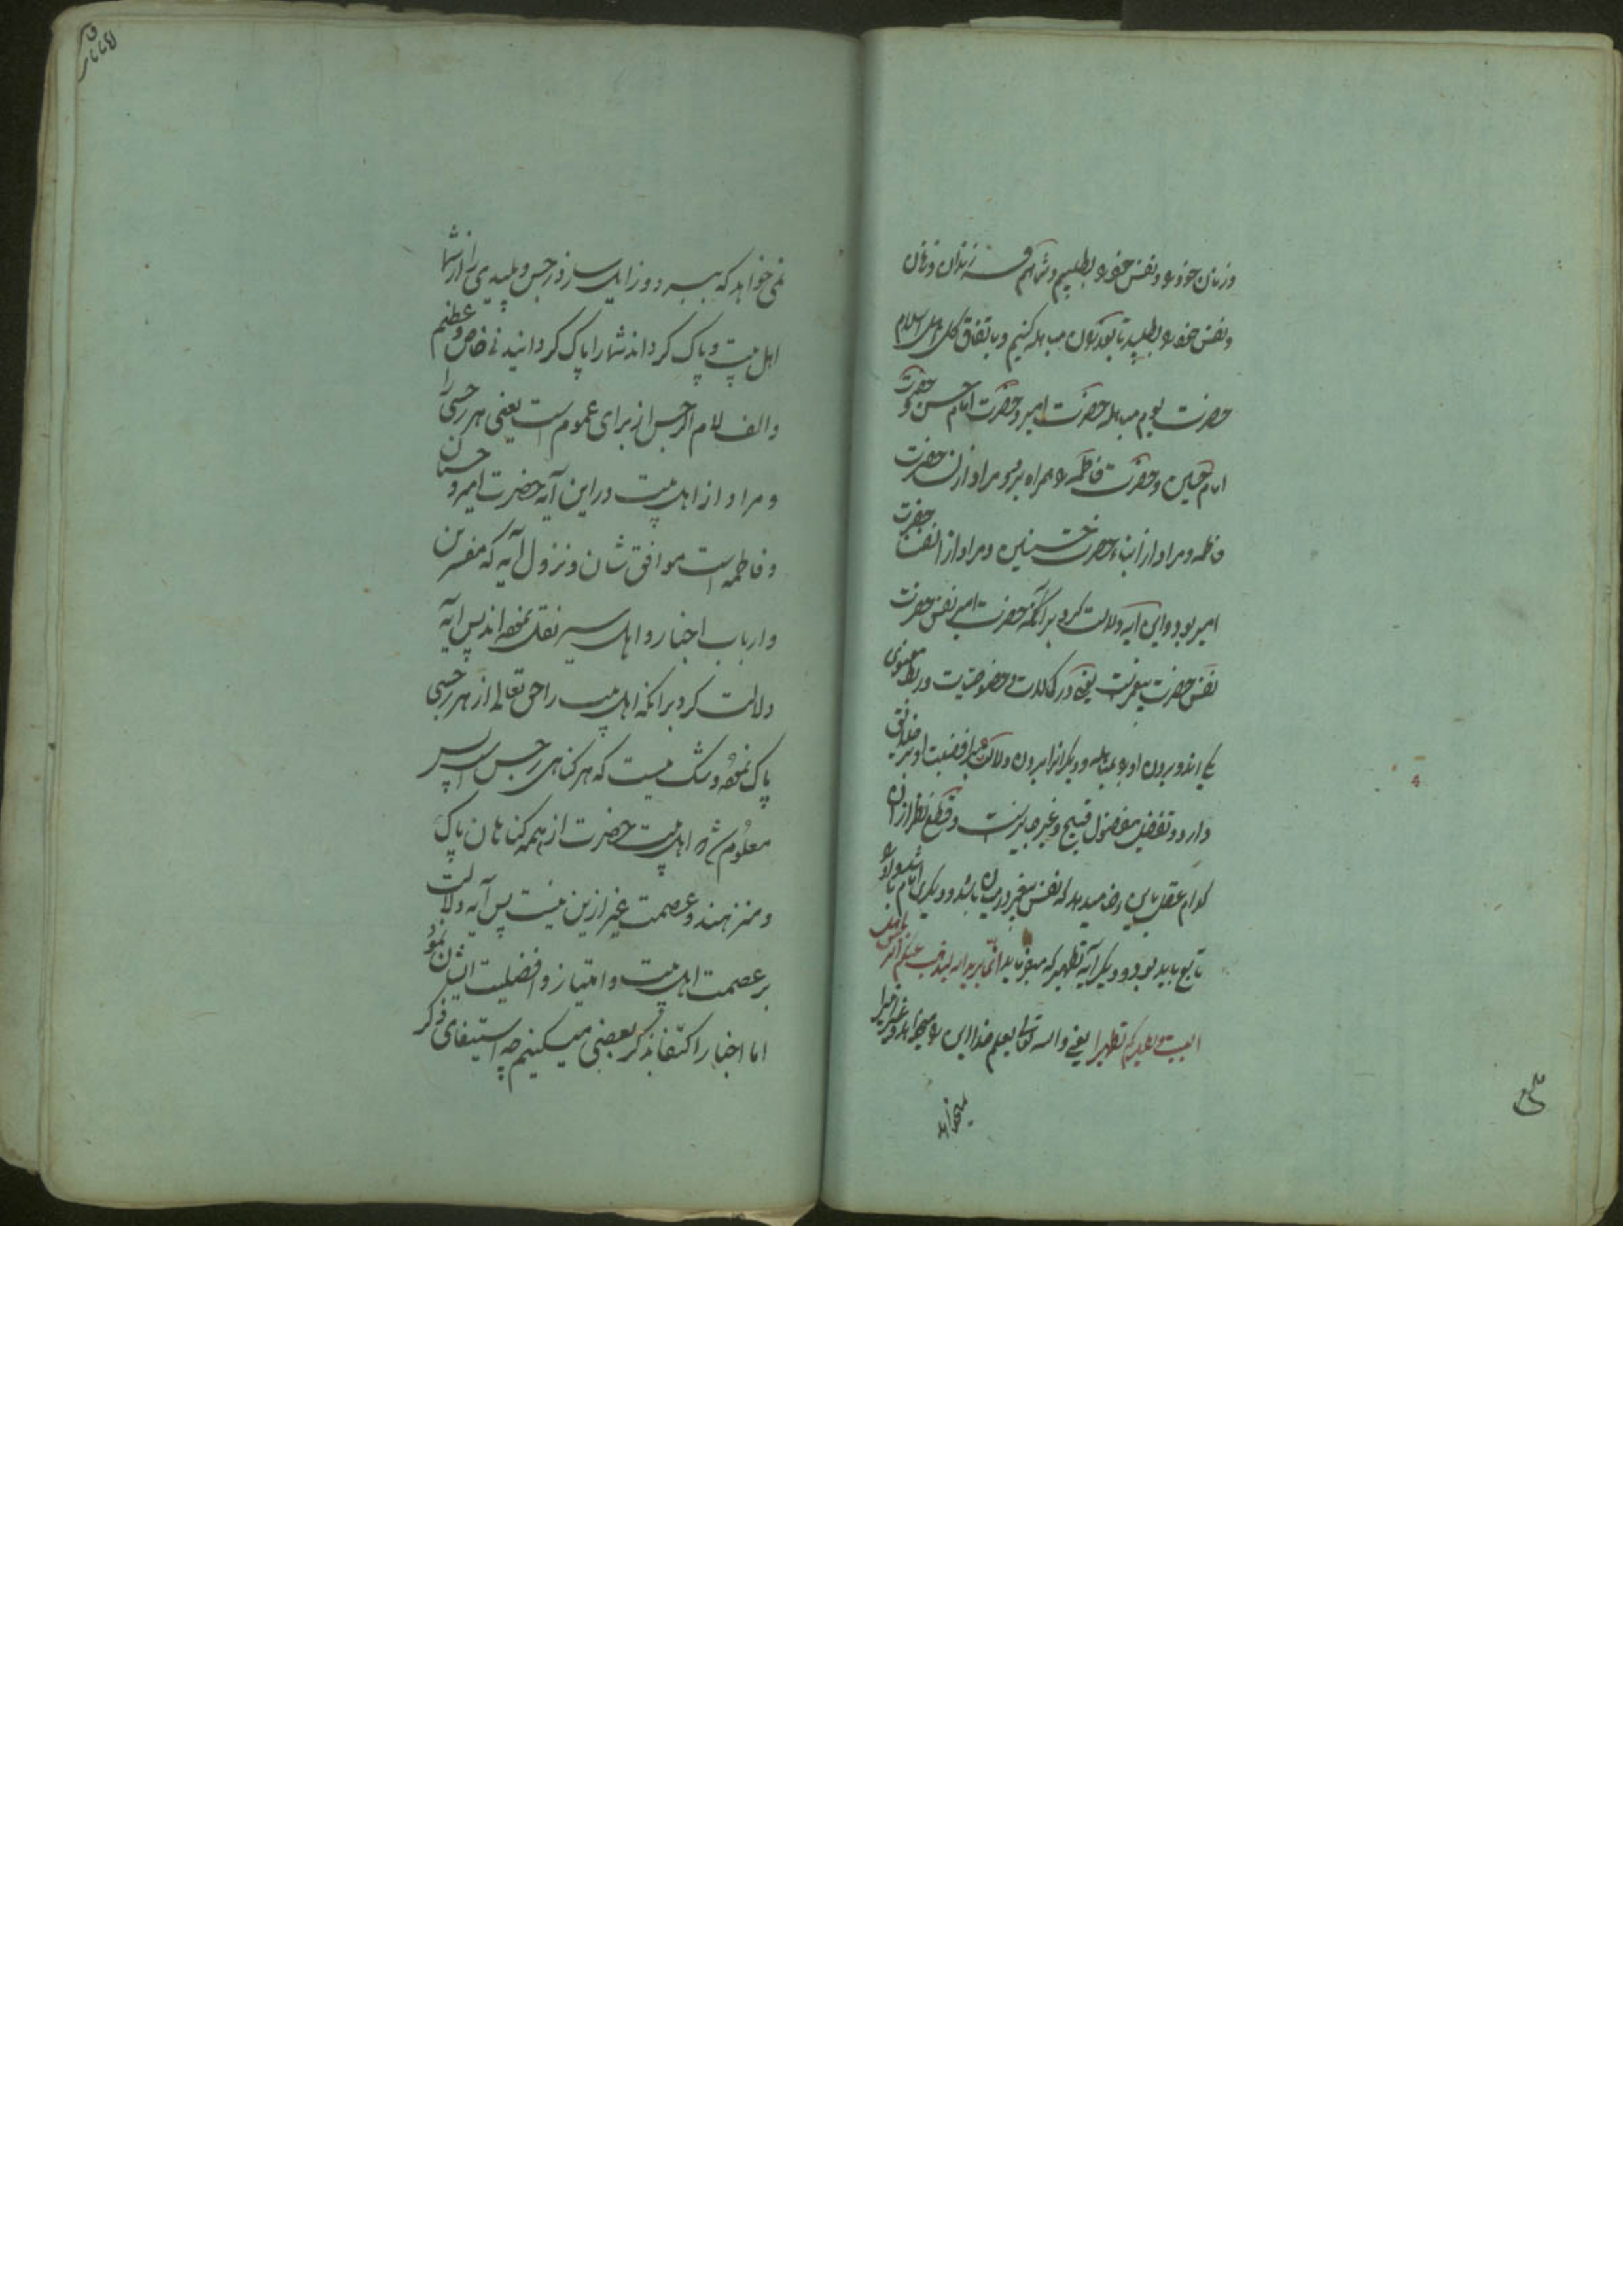 وزنان خود را و نفس خود را بطلبیم و شما هم فرزندان و زنان
و نفس خود را بطلبید تا بعد از ان مباهله کنیم و باتفاق کل اهل اسلام
حضرت یوم مباهله حضرت امیر و حضرت امام حسن و حضرت
امام حسین و حضرت فاطمه را همراه برد و مراد از نسا حضرت
فاطمه و مراد از ابناء حضرت حسنین و مراد از انفسنا حضرت
امیر بود و این آیه دلالت کرد بر آنکه حضرت امیر نفس حضرت
نفس حضرت پیغمبرست یعنی در کمالات و خصوصیات و ربط معنوی
یکی اند و بردن او را بمباهله و دیگرانرا نبردن دلالت بر افضلیت او بر خلایق
دارد و تفضیل مفضول قبیح و غیر جایزست و قطع نظر از ان
کدام عقل باین رضا میدهد که نفس پیغمبر در میان باشد و دیگری امام باشد و او را
تابع باید بود و دیگر آیه تطهیر که میفرماید انما یرید الله لیذهب عنکم الرجس اهل
البیت و یطهرکم تطهیرا یعنی والله تعالی یعلم خدا این را میخواهد و غیر این را
نمیخواهد
نمی خواهد که ببرد و زایل سازد رجس و پلیدی را از شما
اهل بیت و پاک گرداند شما را پاک گردانیدنی خاص و عظیم
والف لام الرجس از برای عموم است یعنی هر رجسی را
و مراد از اهل بیت در این آیه حضرت امیر و حسنان
و فاطمه است موافق شان و نزول آیه که مفسرین
و ارباب اخبار و اهل سیر نقل نموده اند پس آیه
دلالت کرد بر آنکه اهل بیت را حق تعالی از هر رجسی
پاک نموده و شک نیست که هر گناهی رجس است پس
معلوم شد اهل بیت حضرت از همه گناهان پاک
و منزهند و عصمت غیر ازین نیست پس آیه دلالت
بر عصمت اهل بیت و امتیاز و افضلیت ایشان نمود
اما اخبار اکتفا بذکر بعضی میکنیم چه استیفای ذکر